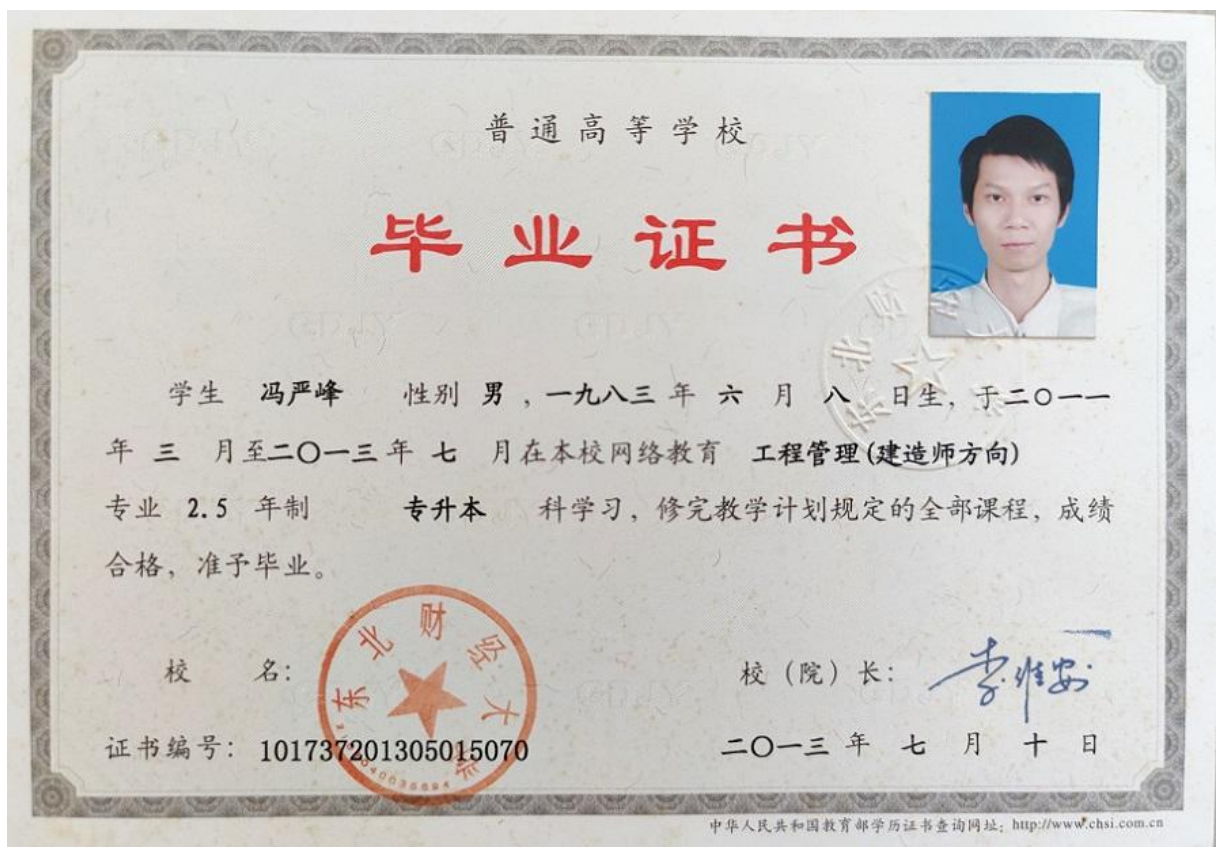 普通高等学校
毕业证书
学生 冯严峰 性别 男，一九八三 年 六 月 八 日生，于二〇一一
年 三 月至二〇一三年 七 月在本校网络教育 工程管理(建造师方向)
专业 2.5 年制 专升本 科学习，修完教学计划规定的全部课程，成绩
合格，准予毕业。
校 名：
东北财经大学
校（院）长：
李维安
证书编号：101737201305015070
二〇一三 年 七 月 十 日
中华人民共和国教育部学历证书查询网址：http://www.chsi.com.cn